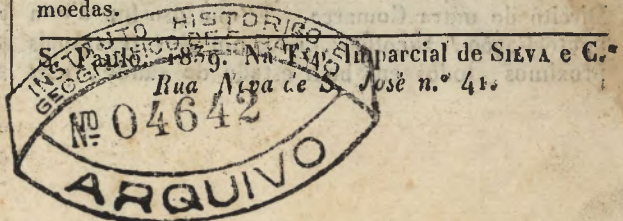 moedas.
S. Paulo. 1839. Na Typ. Imparcial de SILVA e C.ª
Rua Nova de S. José n.º 41.
INSTITUTO HISTORICO E
GEOGRAPHICO DE S. PAULO
Nº 04642
ARQUIVO